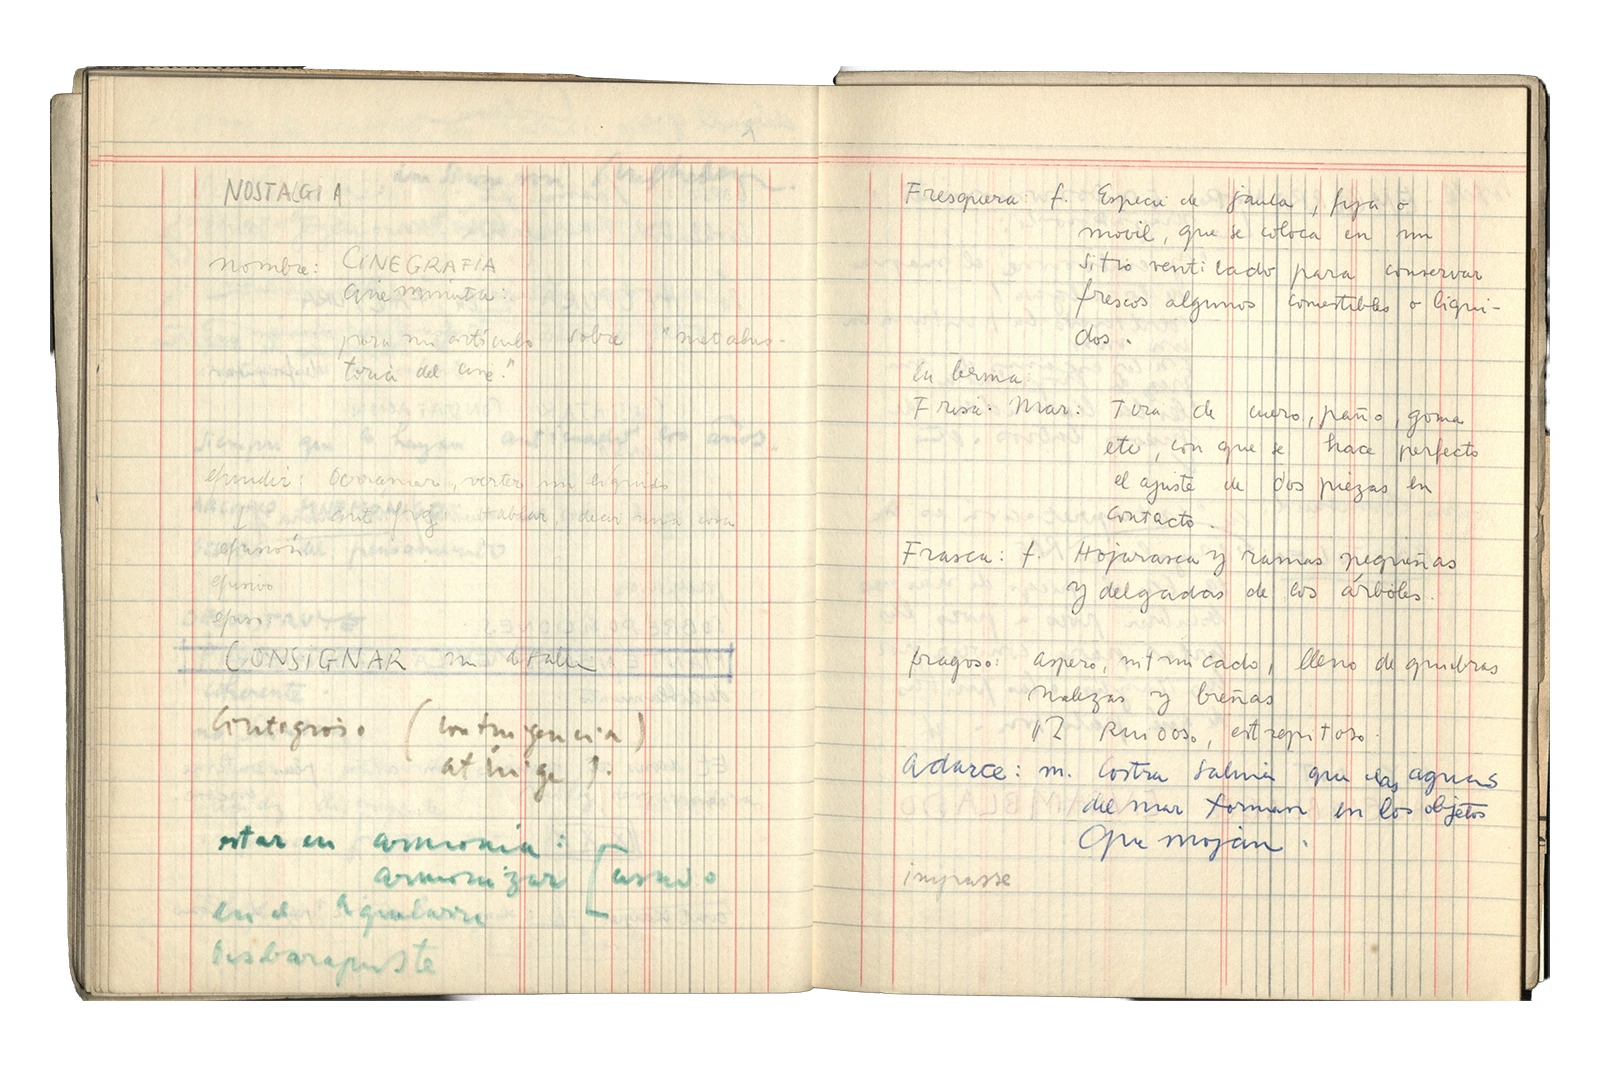 NOSTALGIA
nombre: CINEGRAFIA
cine minuta:
para un artículo sobre "metahis-
toria del cine."
efundir: Derramar, verter un líquido
ant. fig. hablar, decir una cosa
efusión
efusivo
efuso
CONSIGNAR un detalle
(contingencia)
atinge).
estar en armonia:
armonizar
Desbarajuste
Fresquera: f. Especie de jaula, fija o
movil, que se coloca en un
sitio ventilado para conservar
frescos algunos comestibles o liqui-
dos.
la berma
Frisa. Mar: Tira de cuero, paño, goma
etc, con que se hace perfecto
el ajuste de dos piezas en
contacto.
Frasca: f. Hojarasca y ramas pequeñas
y delgadas de los árboles.
fragoso: aspero, intrincado, lleno de quiebras
malezas y breñas
12 Ruidoso, estrepitoso.
Adarce: m. Costra salina que las aguas
del mar forman en los objetos
que mojan.
impasse